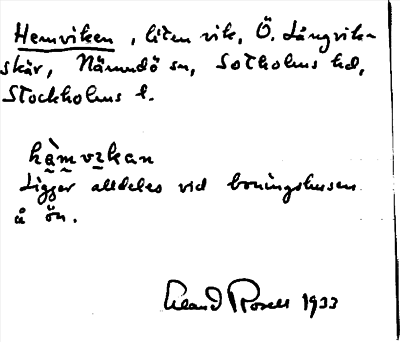 Hemviken, liten vik, Ö. Långvik-
skär, Nämndö sn, Sotholms hd,
Stockholms l.
hàmvikan
Ligger alldeles vid boningshusen
å ön.
Erland Rosell 1933